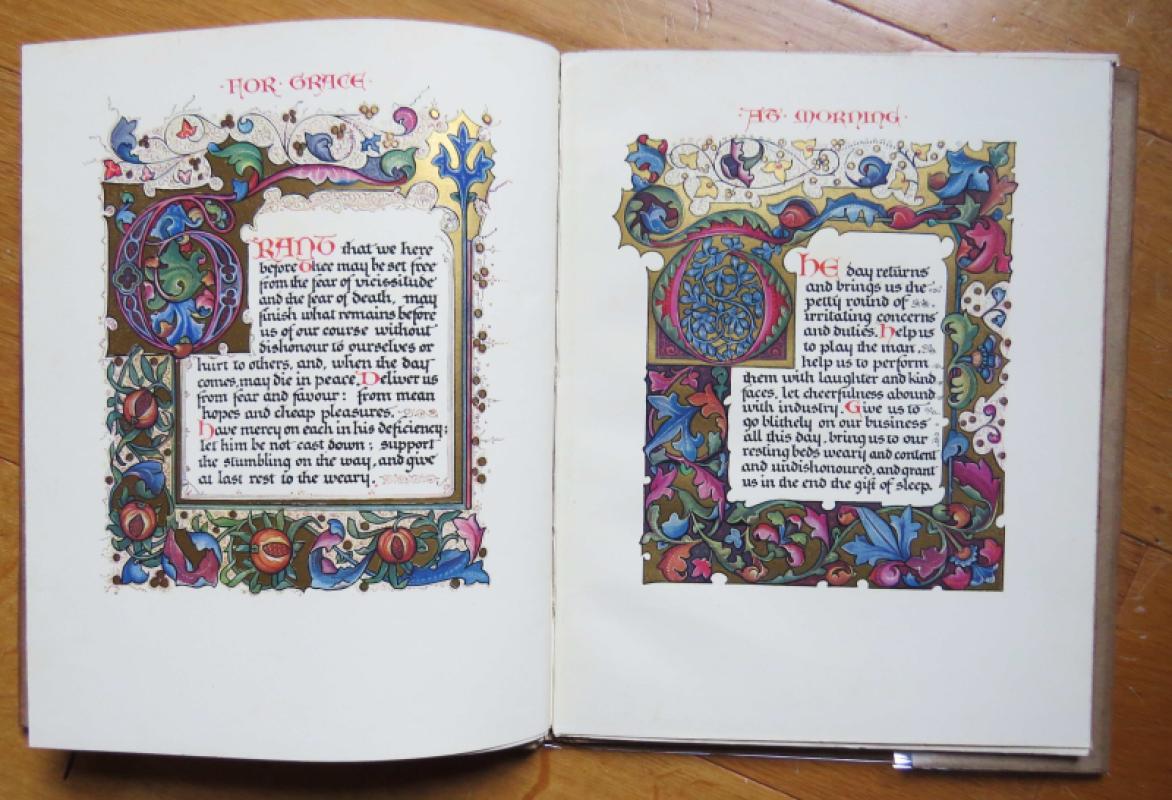 ·FOR·GRACE·
GRANT that we here
before Thee may be set free
from the fear of vicissitude
and the fear of death, may
finish what remains before
us of our course without
dishonour to ourselves or
hurt to others, and, when the day
comes, may die in peace. Deliver us
from fear and favour: from mean
hopes and cheap pleasures.
Have mercy on each in his deficiency;
let him be not cast down; support
the stumbling on the way, and give
at last rest to the weary.
·AT·MORNING·
THE day returns
and brings us the
petty round of
irritating concerns
and duties. Help us
to play the man.
help us to perform
them with laughter and kind
faces, let cheerfulness abound
with industry. Give us to
go blithely on our business
all this day, bring us to our
resting beds weary and content
and undishonoured, and grant
us in the end the gift of sleep.